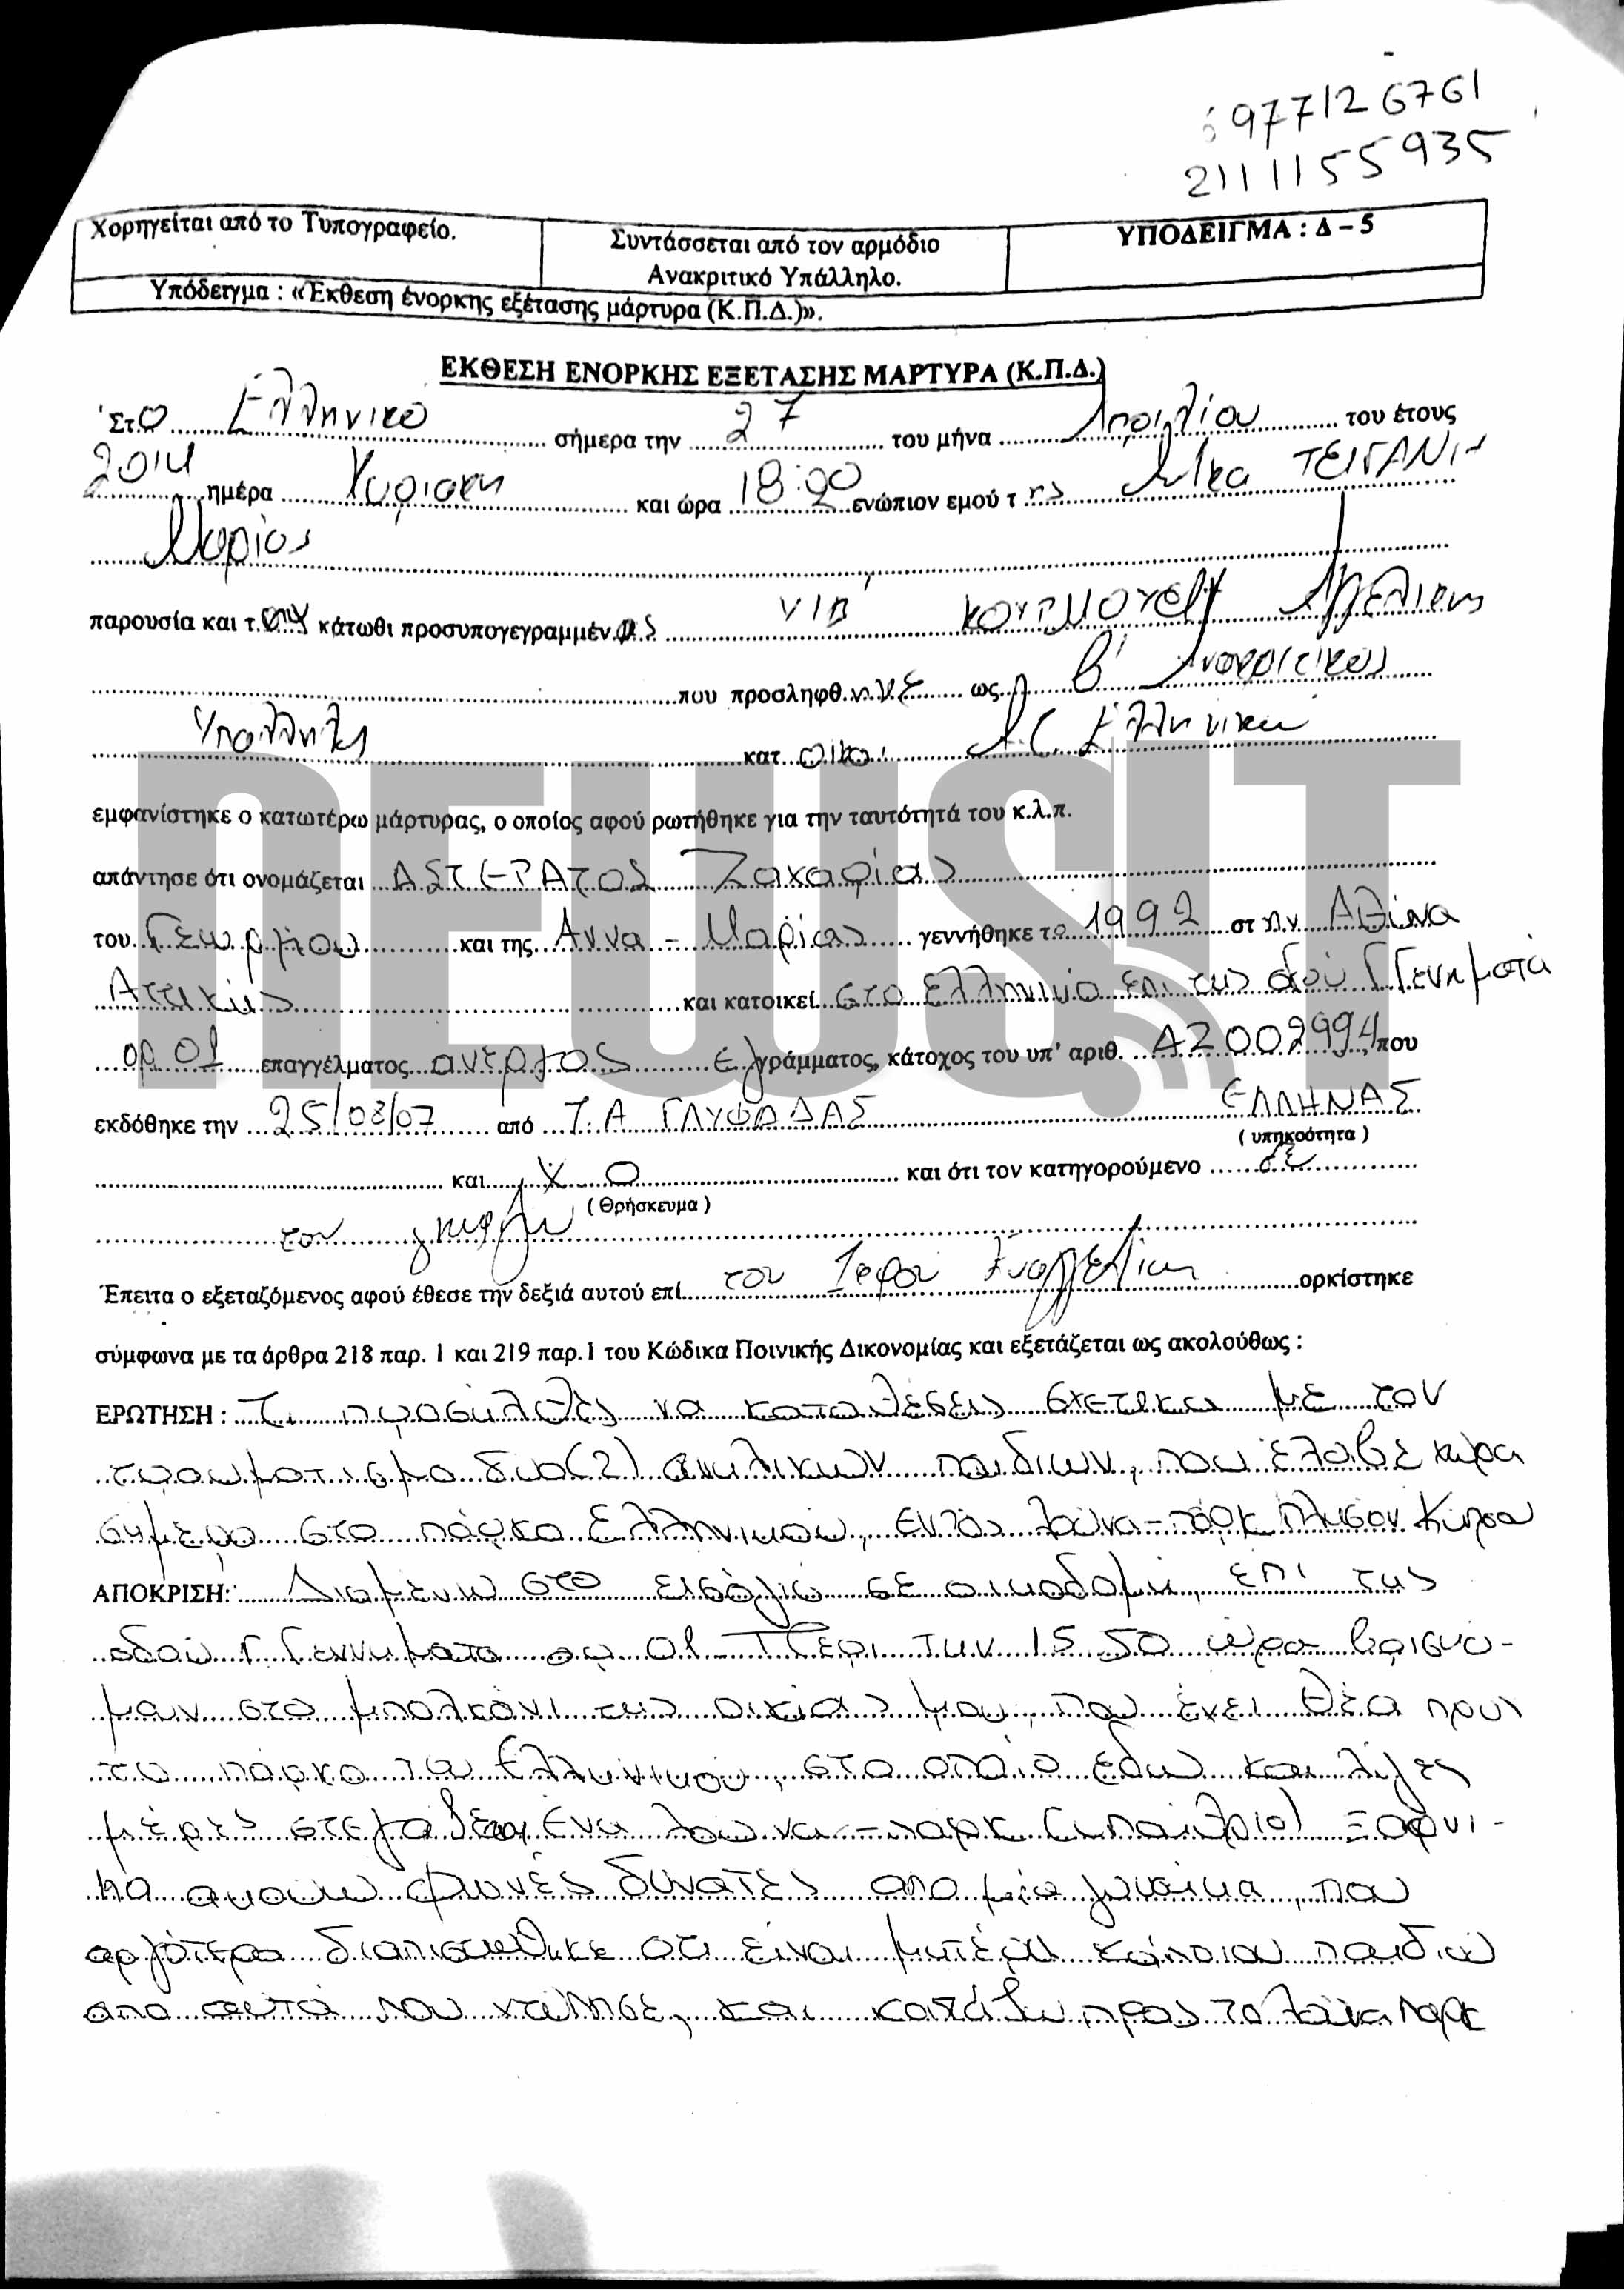 6977126761
2111155935
Χορηγείται από το Τυπογραφείο.
Συντάσσεται από τον αρμόδιο
Ανακριτικό Υπάλληλο.
ΥΠΟΔΕΙΓΜΑ : Δ – 5
Υπόδειγμα : «Έκθεση ένορκης εξέτασης μάρτυρα (Κ.Π.Δ.)».
ΕΚΘΕΣΗ ΕΝΟΡΚΗΣ ΕΞΕΤΑΣΗΣ ΜΑΡΤΥΡΑ (Κ.Π.Δ.)
Στο Ελληνικό σήμερα την 27 του μήνα Απριλίου του έτους
2014 ημέρα Κυριακή και ώρα 18:20 ενώπιον εμού της
παρουσία και της κάτωθι προσυπογεγραμμένης Αγγελικής
που προσληφθ ως Β' Ανακριτικός
Υπάλληλος κατ Α.Τ. Ελληνικού
εμφανίστηκε ο κατωτέρω μάρτυρας, ο οποίος αφού ρωτήθηκε για την ταυτότητά του κ.λ.π.
απάντησε ότι ονομάζεται ΑΣΤΕΡΑΤΟΣ Ζαχαρίας
του Γεωργίου και της Άννα - Μαρίας γεννήθηκε το 1992 στην Αθήνα
Αττικής και κατοικεί στο Ελληνικό επι της οδού Γ Γενηματά
αρ 01 επαγγέλματος άνεργος εγγράμματος, κάτοχος του υπ' αριθ. ΑΖ 002994, που
εκδόθηκε την 25/08/07 από Τ.Α ΓΛΥΦΑΔΑΣ ΕΛΛΗΝΑΣ
( υπηκοότητα )
και Χ Ο και ότι τον κατηγορούμενο δε
( Θρήσκευμα )
τον
Έπειτα ο εξεταζόμενος αφού έθεσε την δεξιά αυτού επί του Ιερού Ευαγγελίου ορκίστηκε
σύμφωνα με τα άρθρα 218 παρ. 1 και 219 παρ.1 του Κώδικα Ποινικής Δικονομίας και εξετάζεται ως ακολούθως :
ΕΡΩΤΗΣΗ : Τι προσήλθες να καταθέσεις σχετικά με τον
τραυματισμό δυο (2) ανηλίκων παιδιών, που έλαβε χώρα
σήμερα στο πάρκο Ελληνικού, εντός λούνα-παρκ πλησίον Κύπρου
ΑΠΟΚΡΙΣΗ: Διαμένω στο ισόγειο σε οικοδομή, επι της
οδού Γ Γεννηματά αρ 01 Περί την 15 50 ώρα βρισκό-
μουν στο μπαλκόνι της οικίας μου, που έχει θέα προς
το πάρκο του Ελληνικού, στο οποίο εδώ και λίγες
μέρες στεγάζεται ένα λούνα - παρκ (υπαίθριο) Ξαφνι-
κα ακούω φωνές δυνατές απο μία γυναίκα, που
αργότερα διαπιστώθηκε οτι είναι μητέρα κάποιου παιδιού
απο αυτά που χτύπησε, και κατέβω προς το λούνα παρκ
newsit